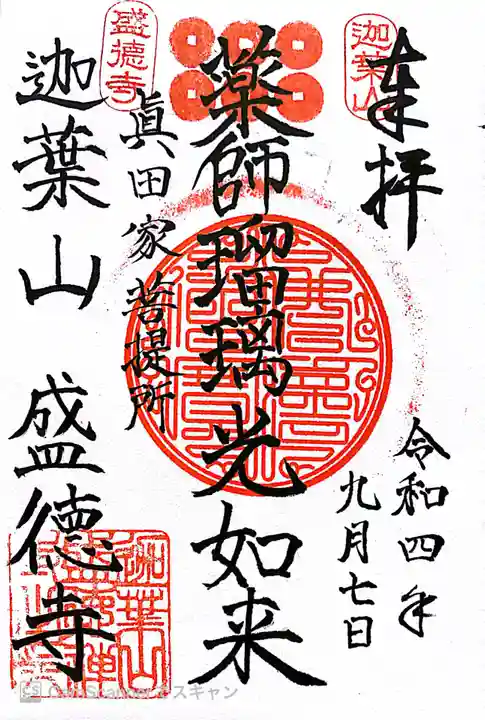 奉拝
迦葉山
令和四年
九月七日
薬師瑠璃光如来
眞田家菩提所
盛徳寺
迦葉山 盛徳寺
CamScannerでスキャン